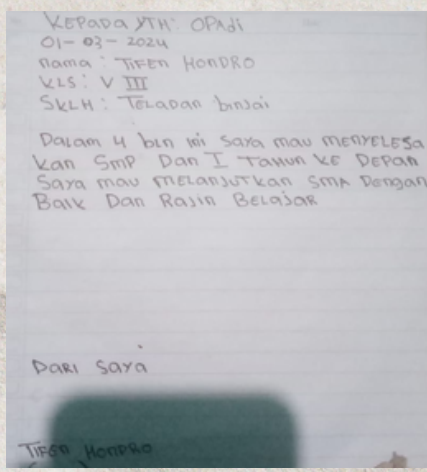 KEPADA YTH: OPAdi
01-03-2024
nama: TIFEN HONDRO
KLS: V III
SKLH: TELADAN binjai
DALAM 4 bLn ini saya mau MENYELESA
kan SMP Dan I TAHUN KE DEPAN
Saya mau MELANJUTKAN SMA DENGAN
BAIK DAN RAJIN BELAJAR
DARI SAYA
TIFEN HONDRO